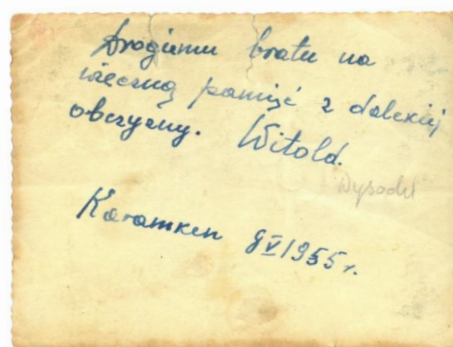 Drogiemu bratu na
wieczną pamięć z dalekiej
obczyzny. Witold.
Wysocki
Karamken 9 V 1955 r.